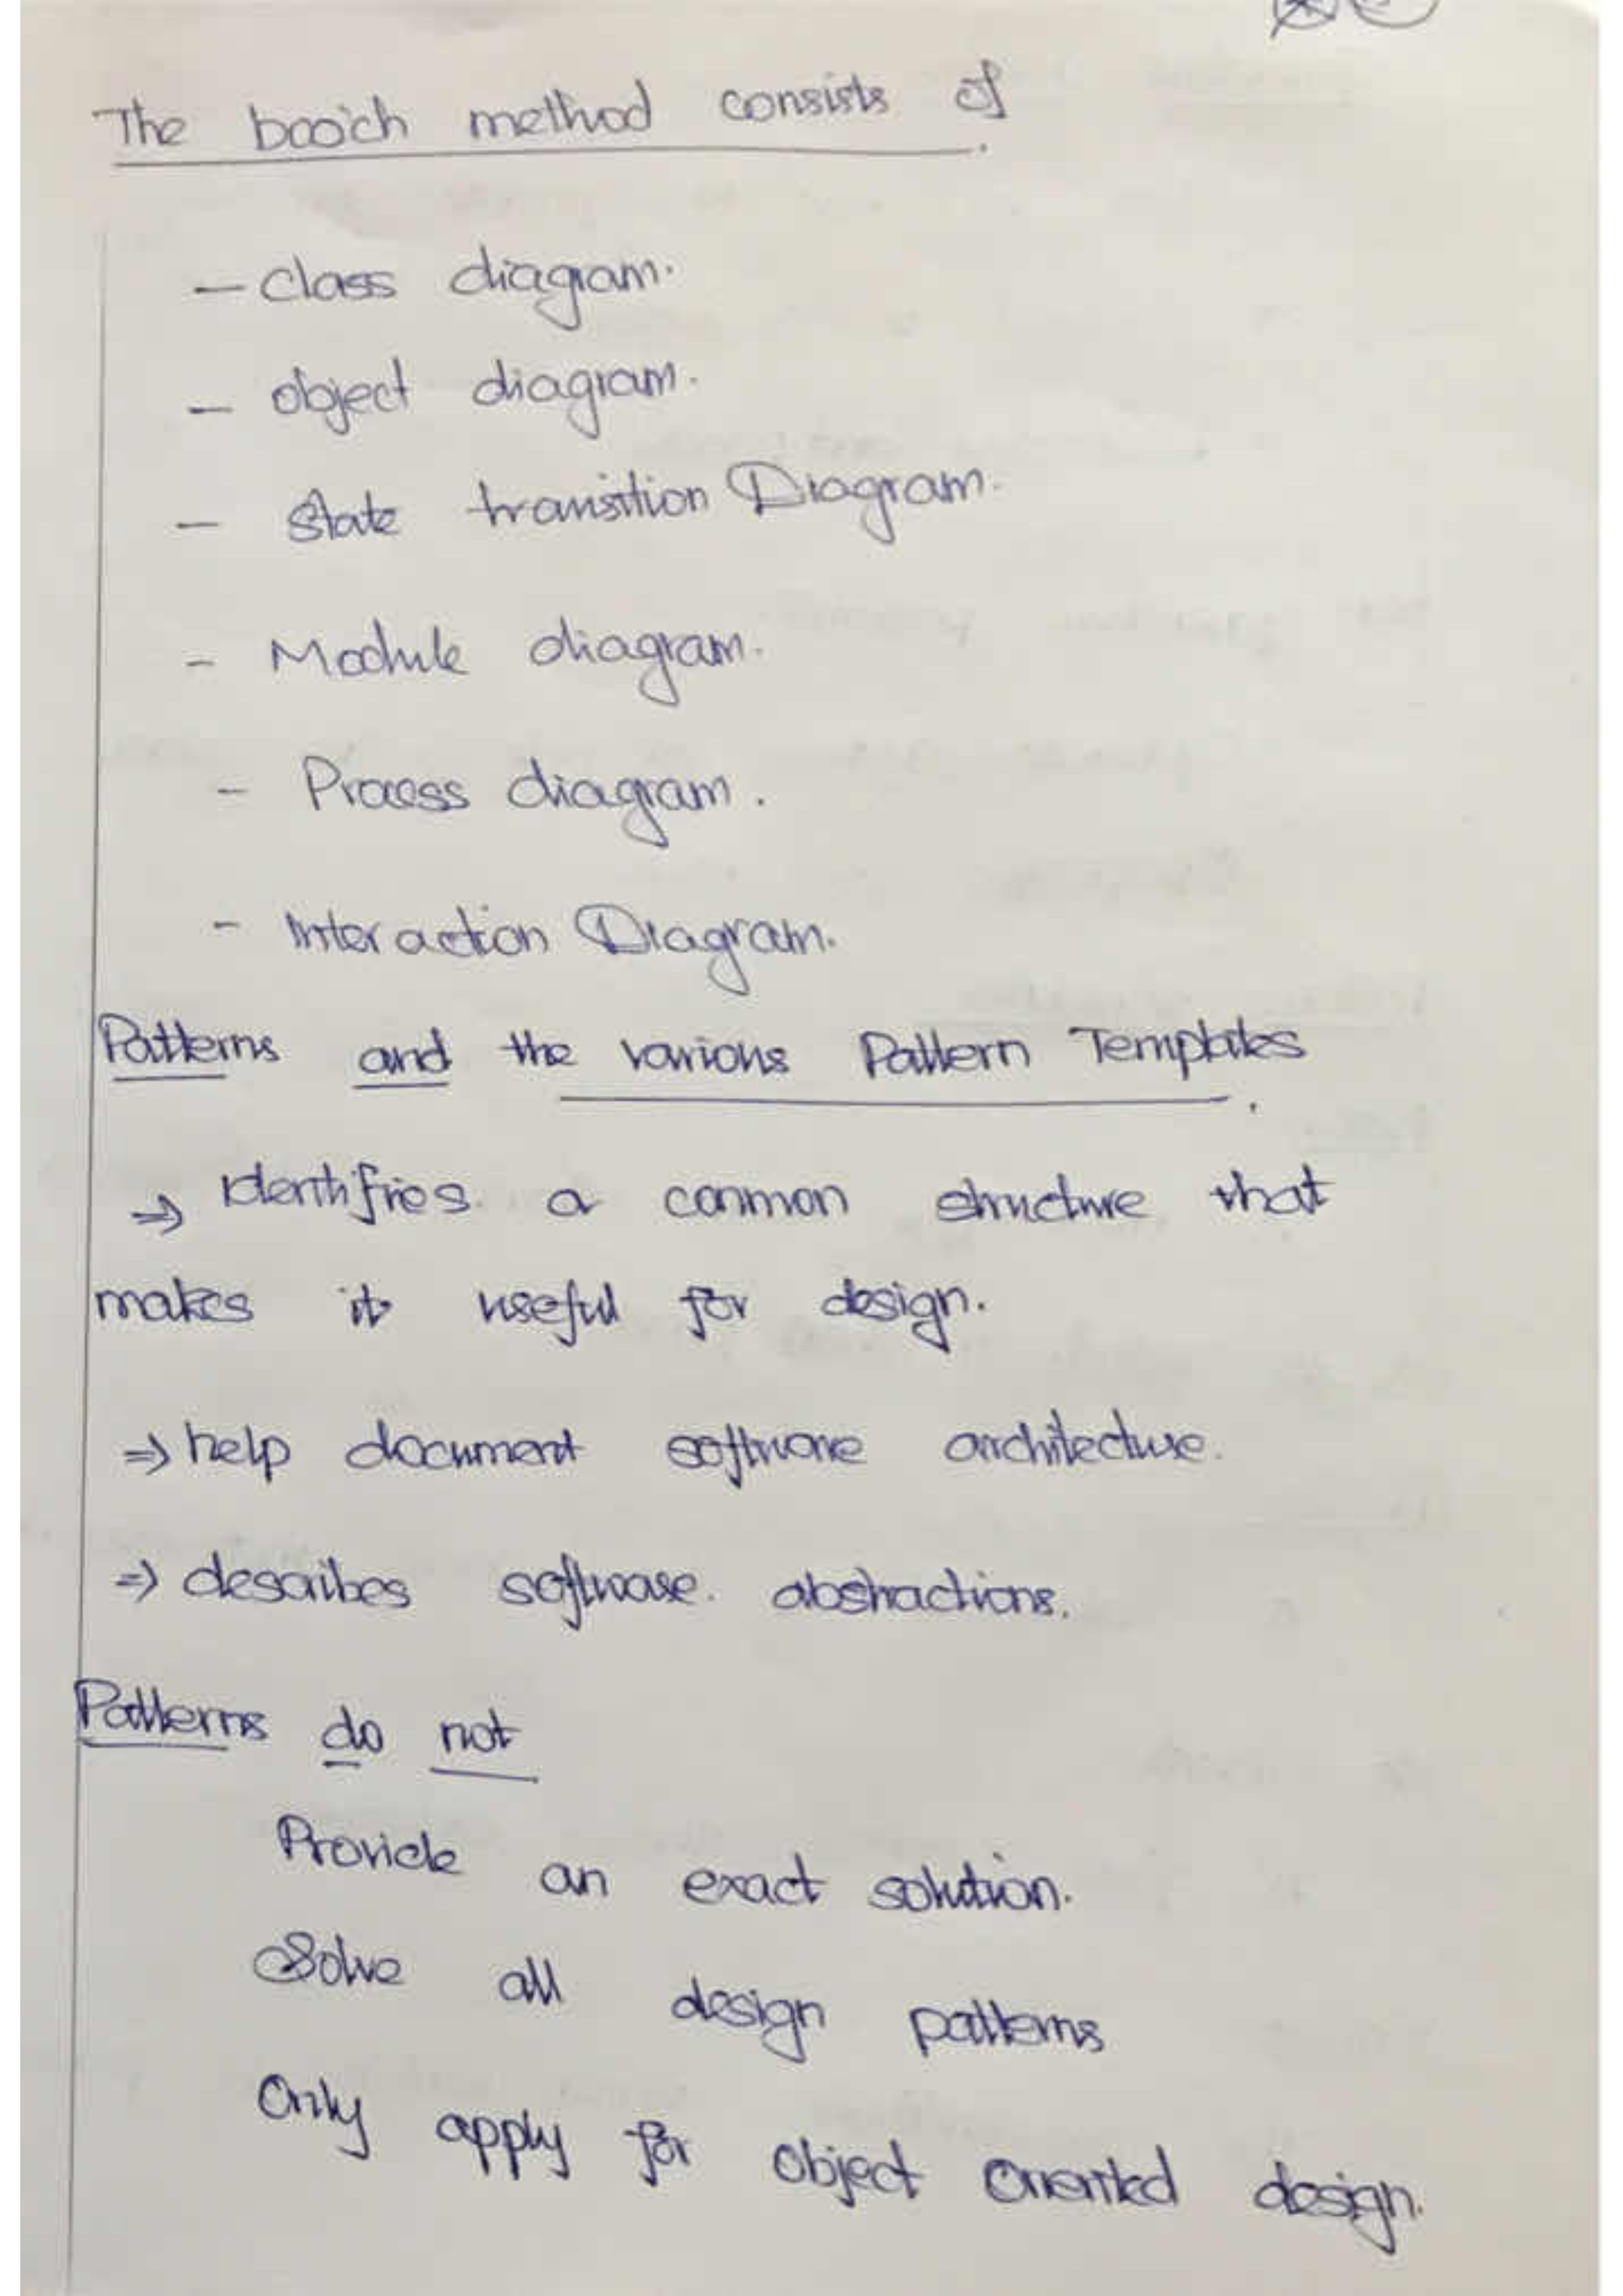 The booch method consists of.
- Class diagram.
- object diagram.
- State transition Diagram.
- Module diagram.
- Process diagram.
- Interaction Diagram.
Patterns and the various Pattern Templates.
⇒ Identifies a common structure that
makes it useful for design.
⇒ help document software architecture.
⇒ describes software. abstractions.
Patterns do not
Provide an exact solution.
Solve all design patterns
Only apply for object oriented design.